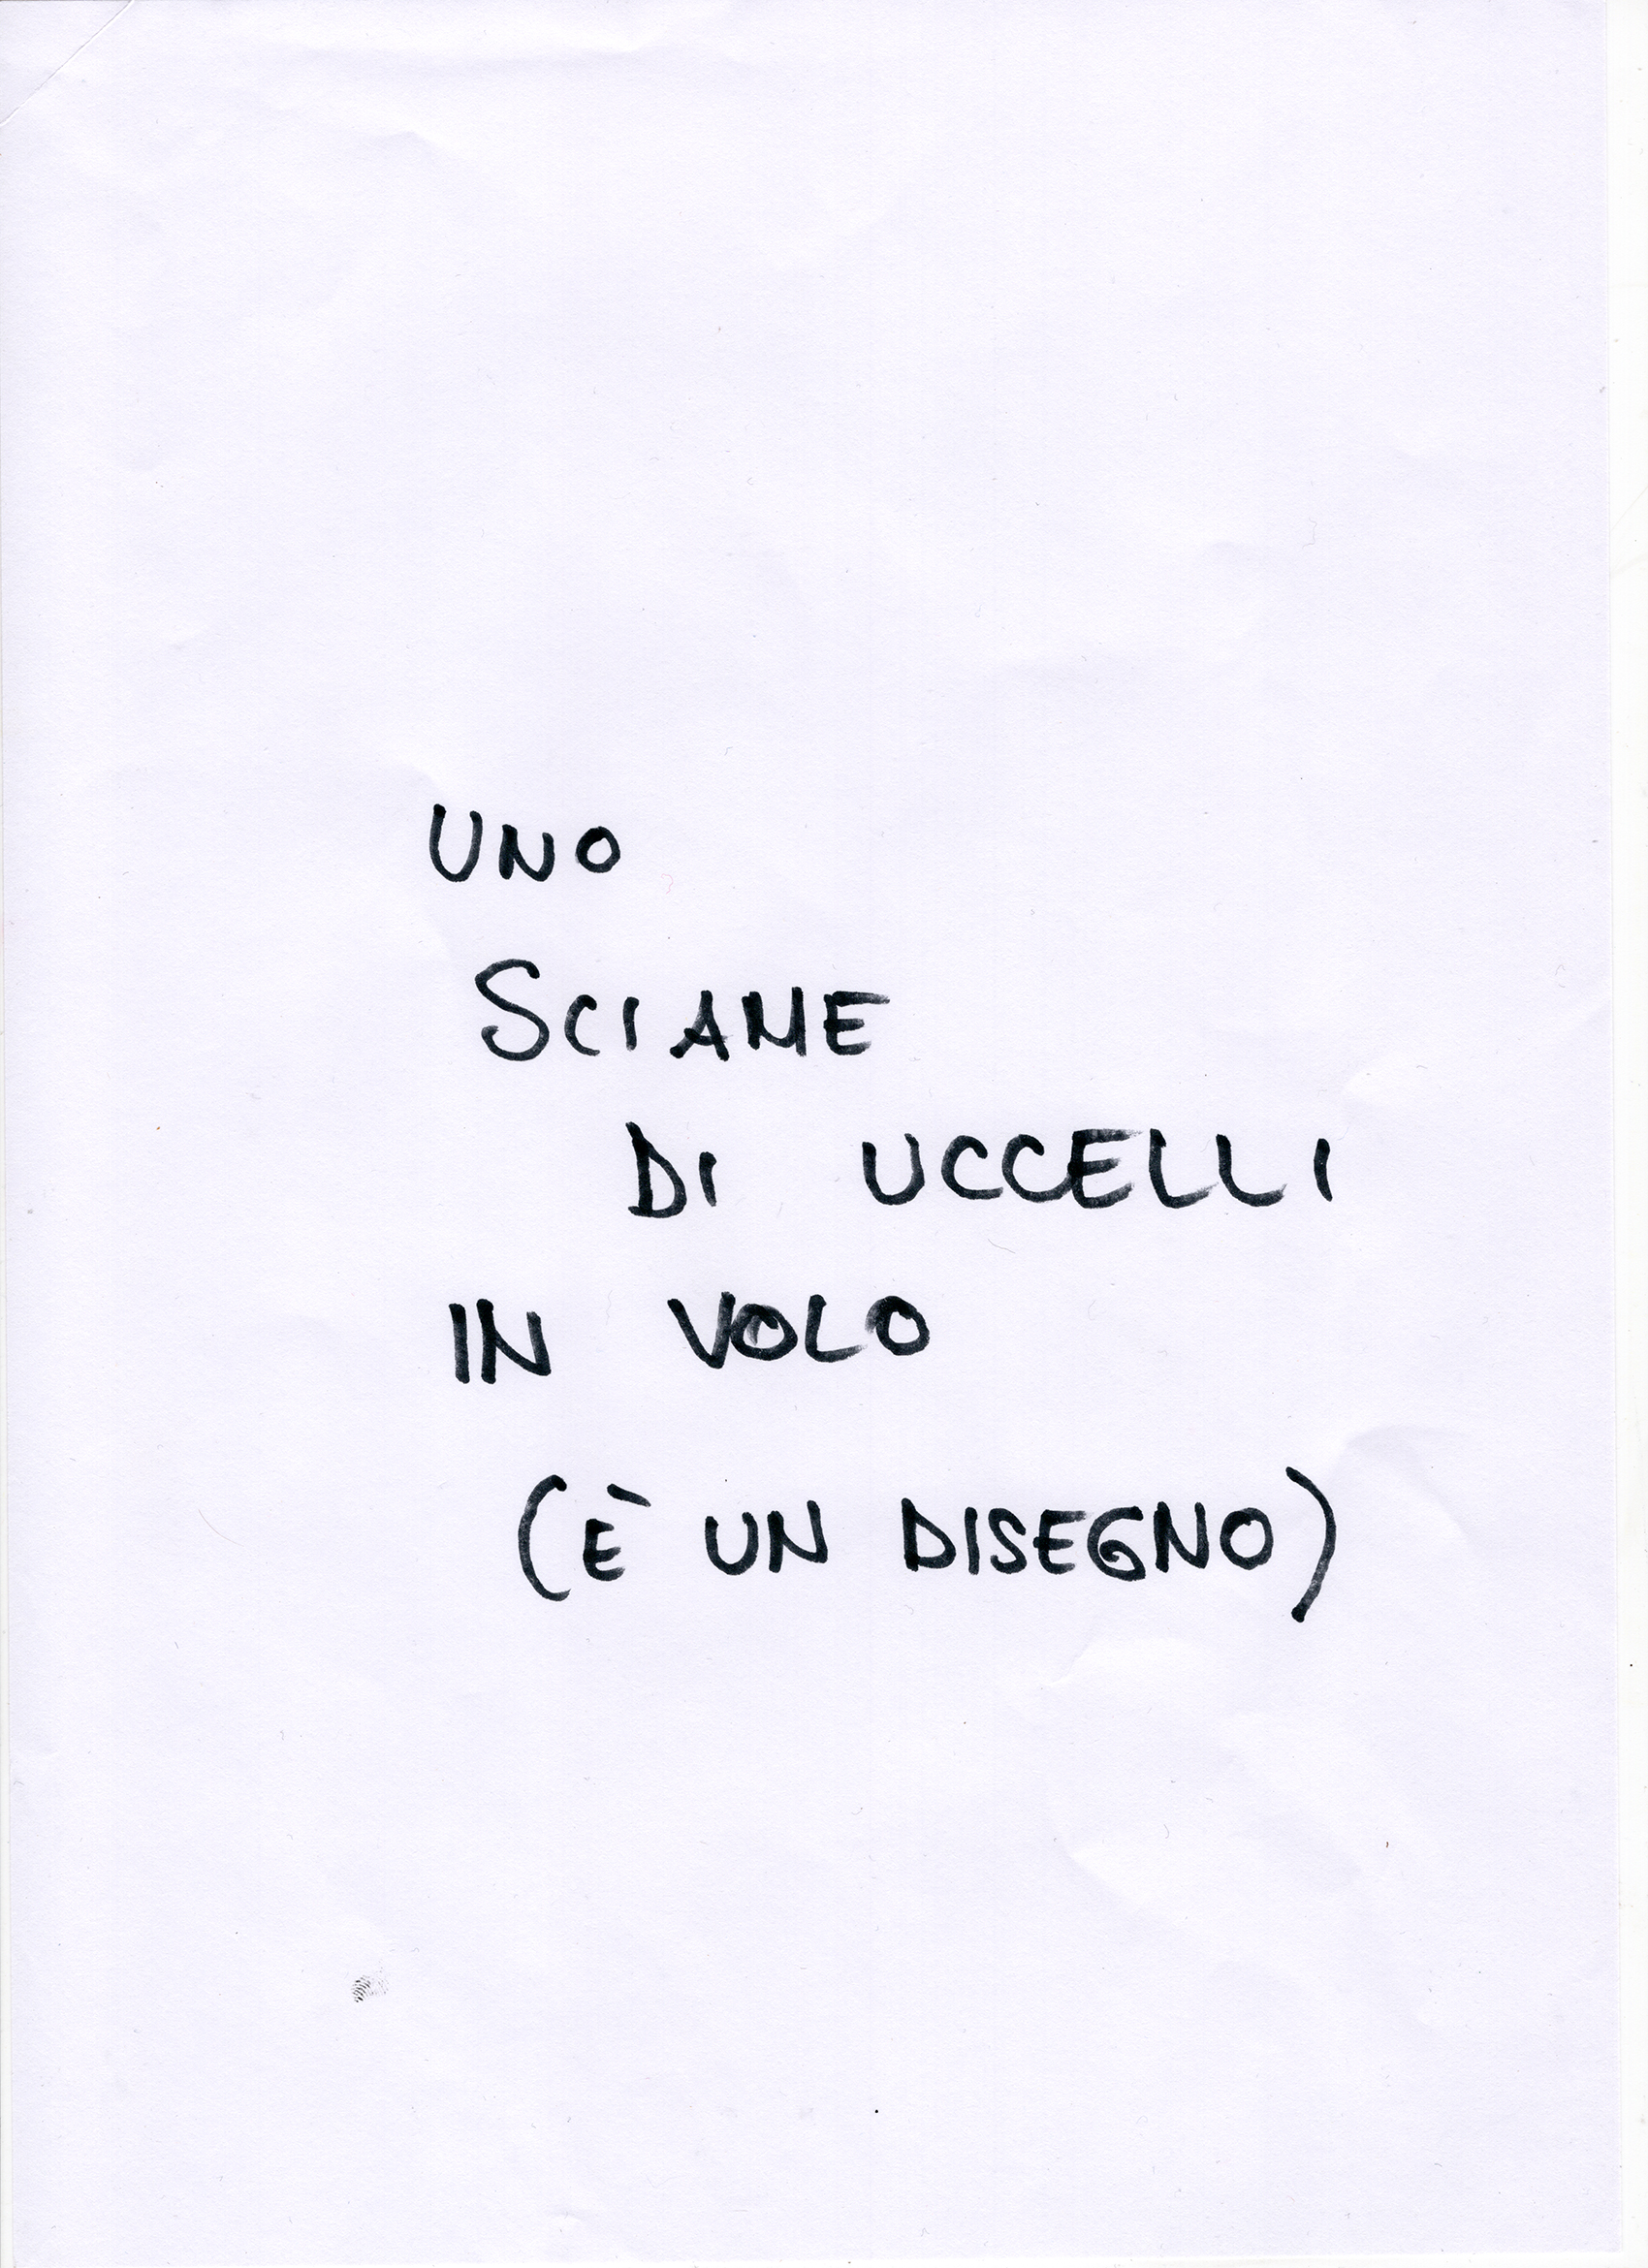 UNO
SCIAME
DI UCCELLI
IN VOLO
(È UN DISEGNO)